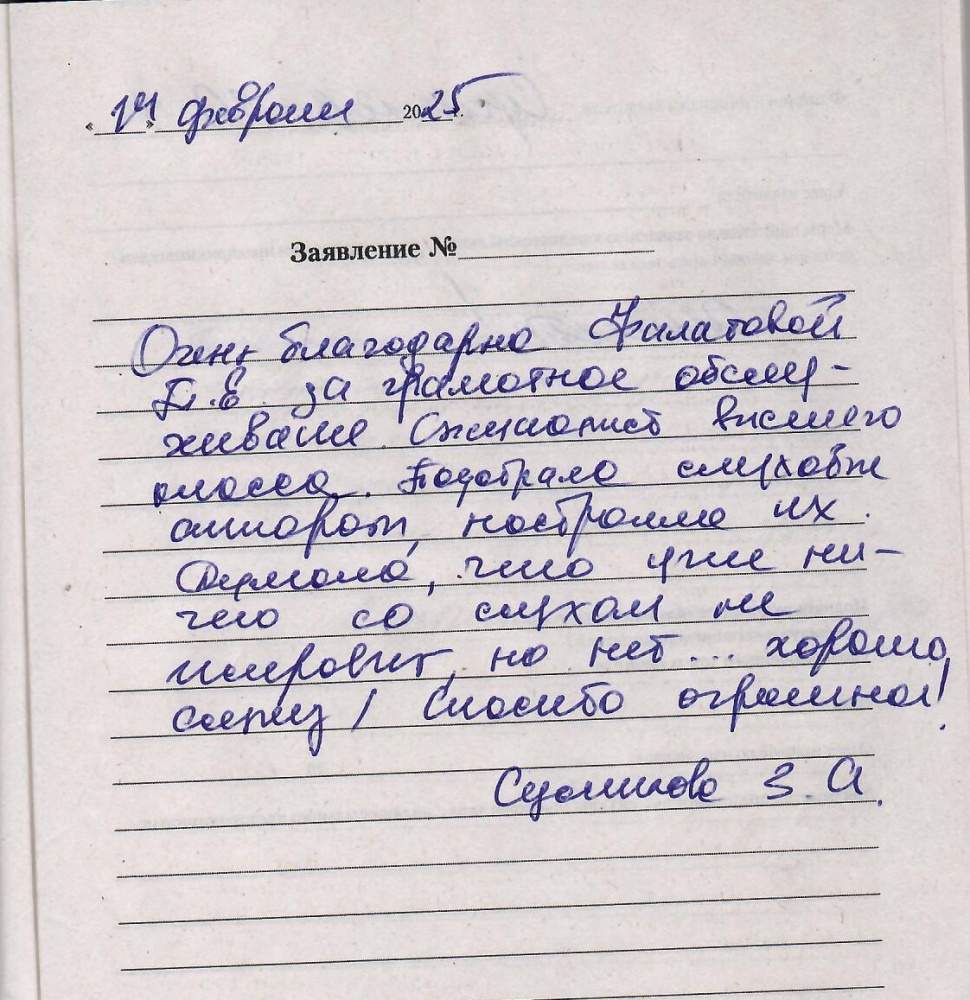 «14» февраля 2025.
Заявление №
Очень благодарна Филатовой
Е. за грамотное обслу-
живание. Специалист высшего
класса. Подобрала слуховые
аппарат, настроила их.
Думала, что уже ни-
чего со слухом не
исправит, но нет... хорошо
слышу! Спасибо огромное!
З. А.